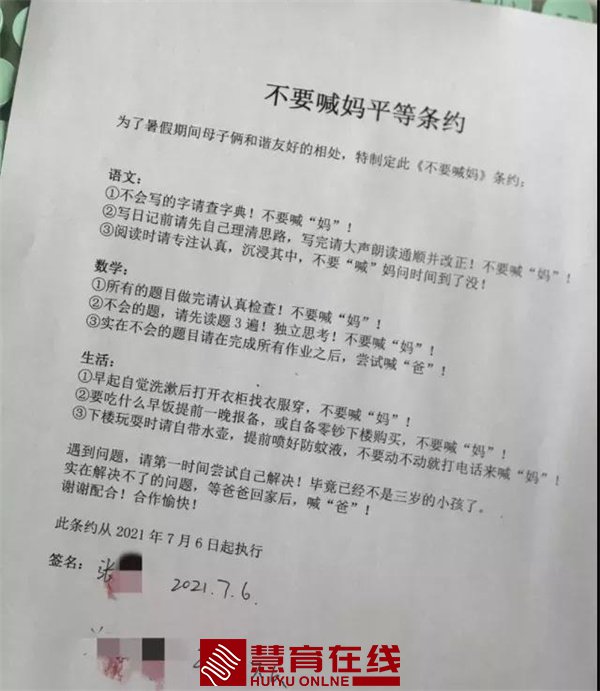 不要喊妈平等条约
为了暑假期间母子俩和谐友好的相处，特制定此《不要喊妈》条约：
语文：
①不会写的字请查字典！不要喊“妈”！
②写日记前请先自己理清思路，写完请大声朗读通顺并改正！不要喊“妈”！
③阅读时请专注认真，沉浸其中，不要“喊”妈问时间到了没！
数学：
①所有的题目做完请认真检查！不要喊“妈”！
②不会的题，请先读题3遍！独立思考！不要喊“妈”！
③实在不会的题目请在完成所有作业之后，尝试喊“爸”！
生活：
①早起自觉洗漱后打开衣柜找衣服穿，不要喊“妈”！
②要吃什么早饭提前一晚报备，或自备零钞下楼购买，不要喊“妈”！
③下楼玩耍时请自带水壶，提前喷好防蚊液，不要动不动就打电话来喊“妈”！
遇到问题，请第一时间尝试自己解决！毕竟已经不是三岁的小孩了。
实在解决不了的问题，等爸爸回家后，喊“爸”！
谢谢配合！合作愉快！
此条约从2021年7月6日起执行
签名：张 2021.7.6.
慧育在线
HUIYU ONLNE